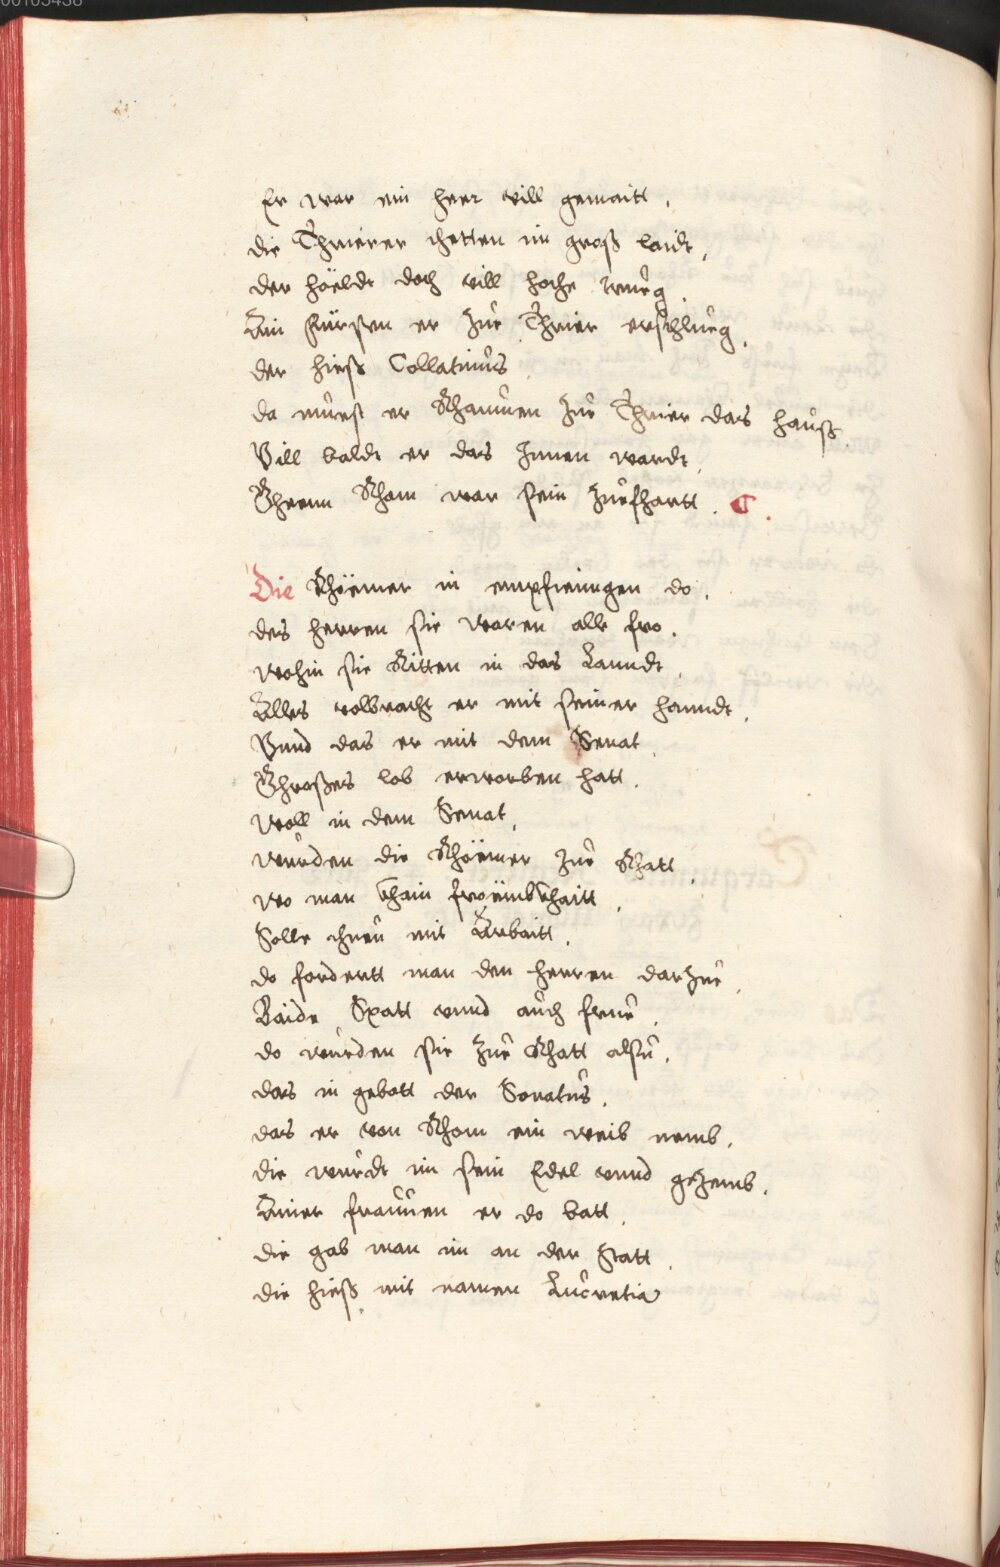 Er war ein herr vill gemaitt.
die Thrierer thetten im groß laidt,
der höeldt doch vill hoche trueg.
Ain Fürsten er zue Thrier erschlueg.
der hieß Collatinus
da muest er Rhaumen zue Thrier das hauß.
Vill baldt er das Innen wardt.
Ghrenn Rhom war sein zuefhartt. C.
Die Rhöemer in empfiengen do.
des herren sie waren alle fro.
wohin sie Ritten in das Lanndt.
Alles volbracht er mit seiner hanndt.
Vnnd das er mit dem Senat.
Ghroßes lob erworben hatt.
woll in dem Senat.
wurden die Rhöemer zue Rhatt.
wo man khain froëmbkhaitt.
Solle thuen mit Arbaitt.
do fordertt man den herren darzue.
Baide Spatt vnnd auch frue.
do wurden sie zue Rhatt alsu.
das in gebott der Sonatus.
das er von Rhom ein weib nemb.
die wurdt im sein Edel vnnd gezemb.
Ainer frauuen er do batt.
die gab man im an der Statt.
die hieß mit namen Lucretia